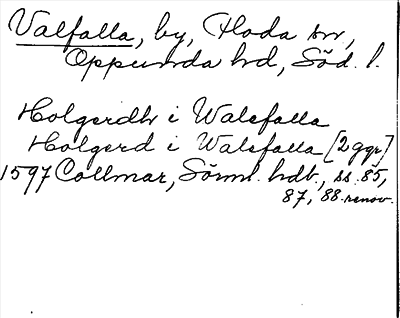 Valfalla, by, Floda sn,
Oppunda hd, Söd. l.
Holgerdh i Walefalla
Holgerd i Walefalla [2 ggr]
1597 Collmar, Sörml. hdb., ss. 85,
87, 88. renov.